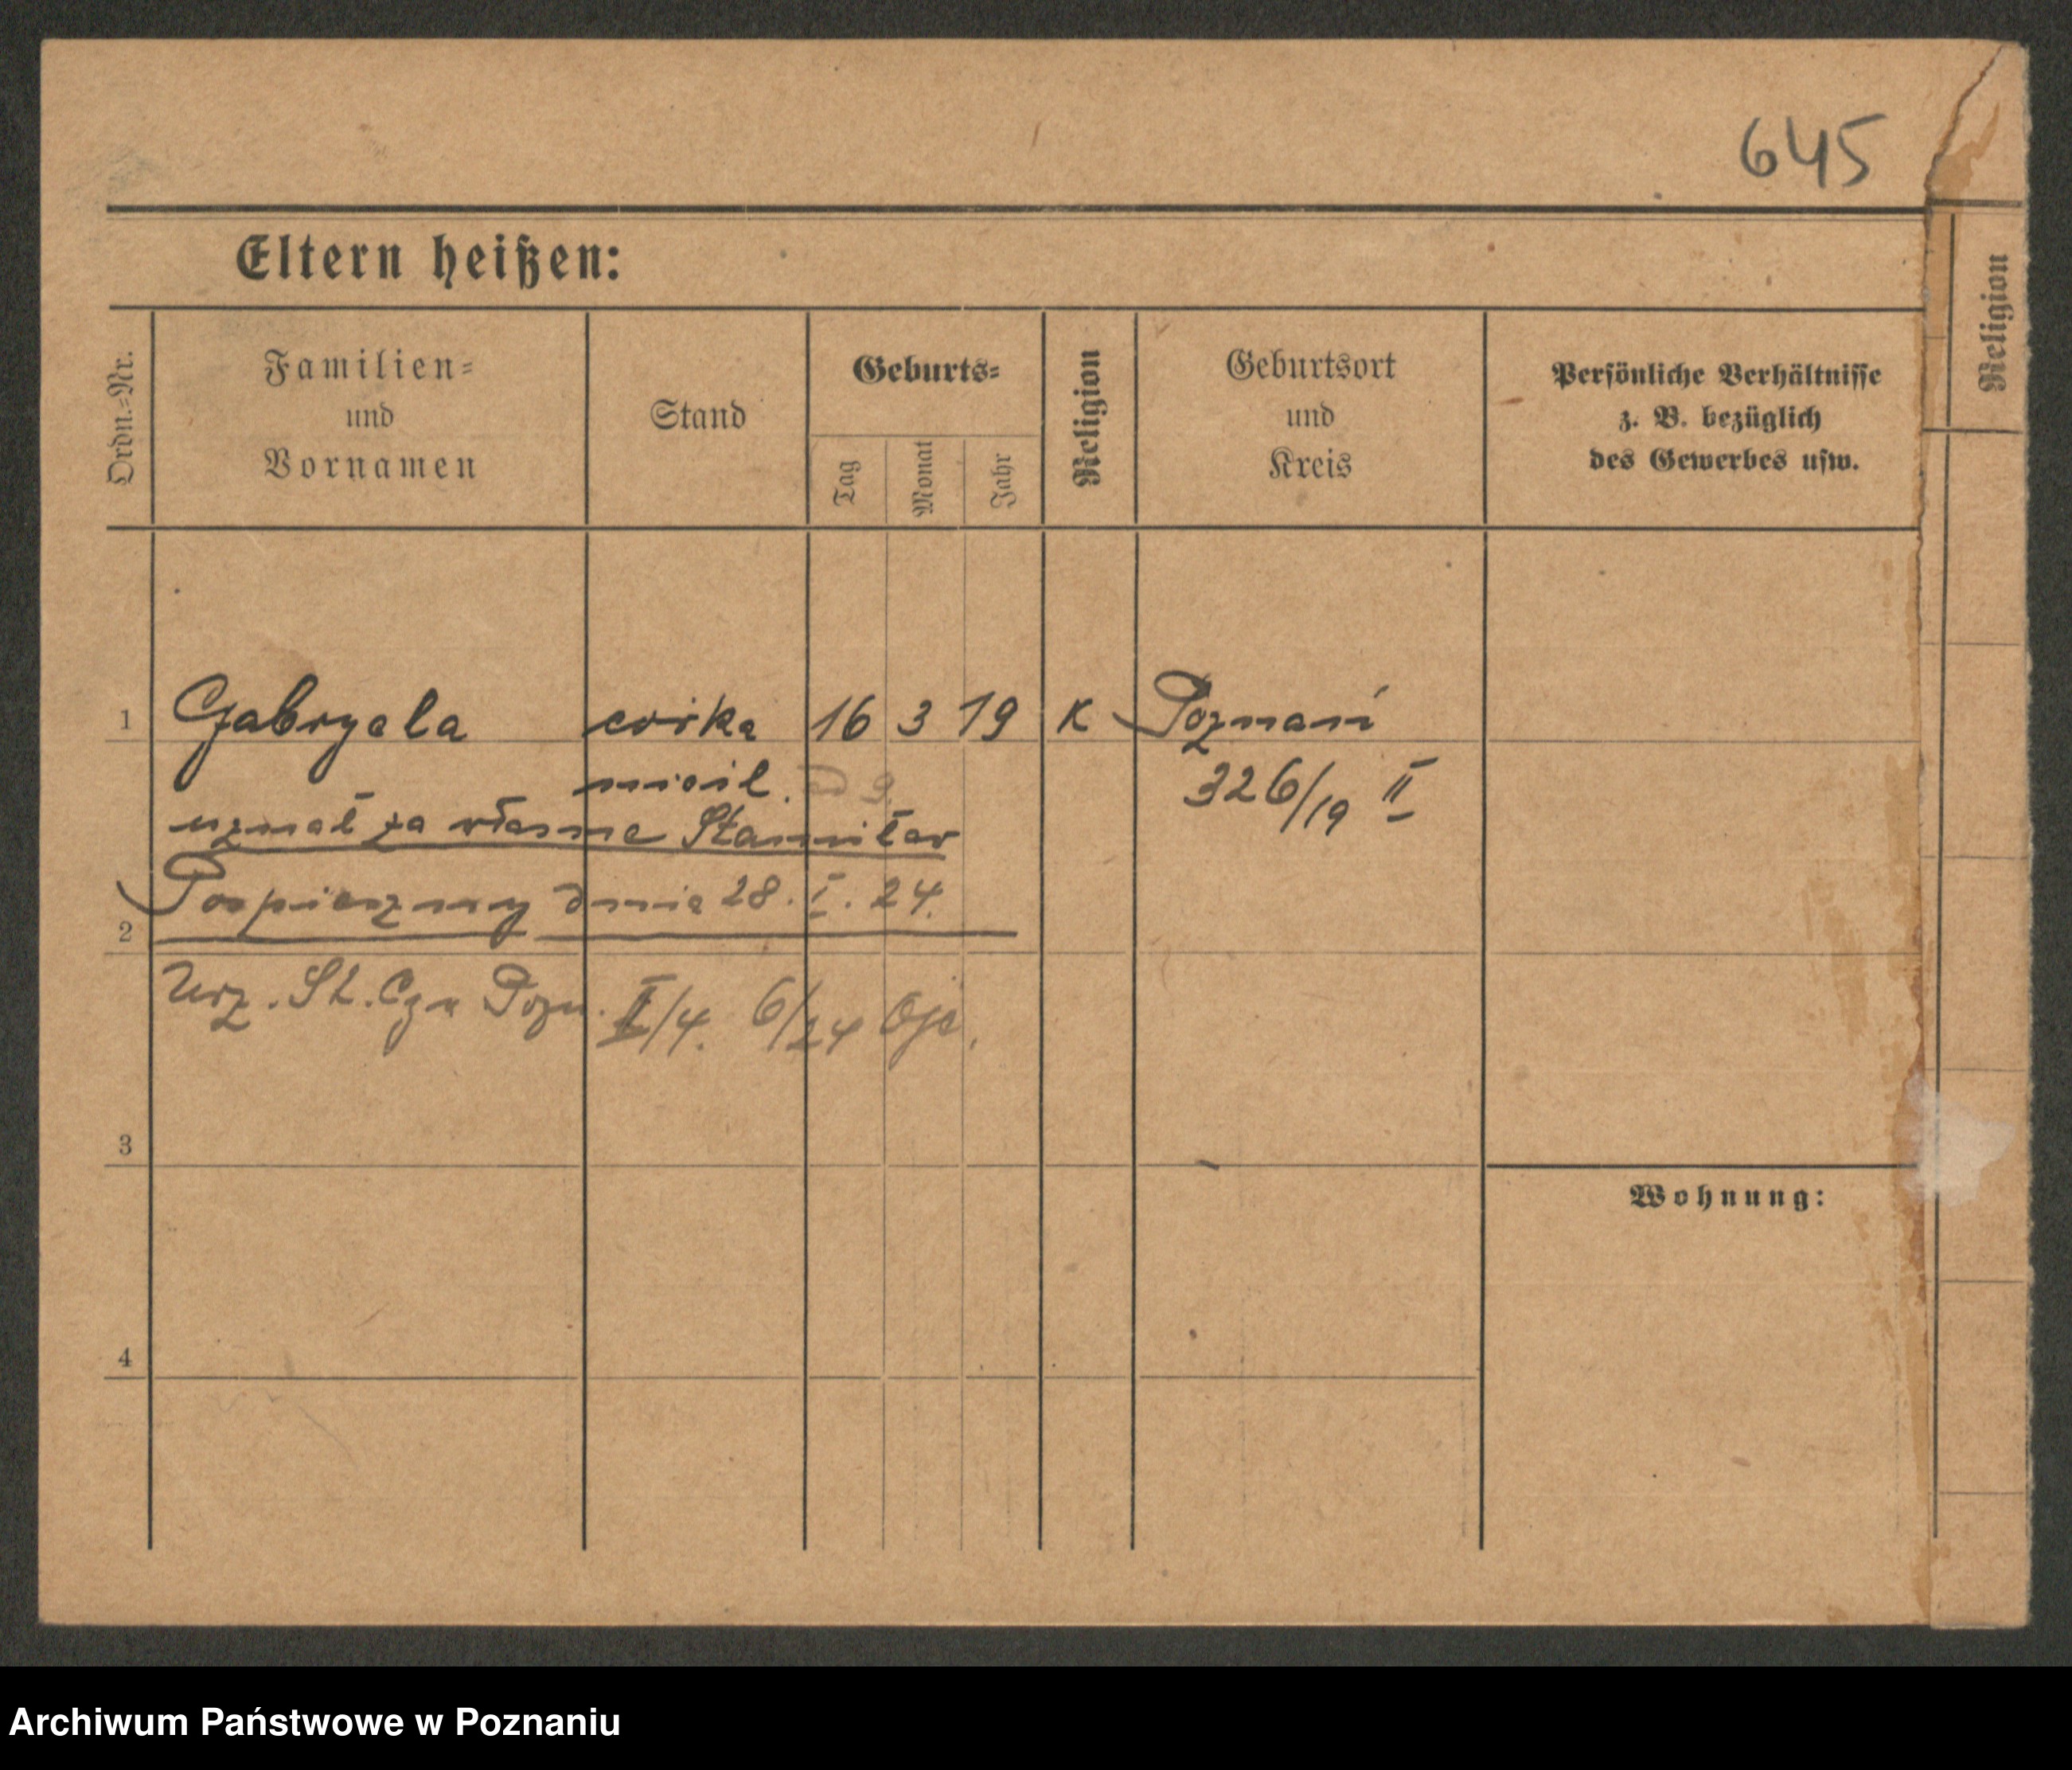 645
Eltern heißen:
Ordn.-Nr.
Familien- und Vornamen
Stand
Geburts-
Tag
Monat
Jahr
Religion
Geburtsort und Kreis
Persönliche Verhältnisse
z. B. bezüglich
des Gewerbes usw.
Religion
1 Gabryela córka 16 3 19 K Poznań
nieśl. 326/19 II
uznał za własne Stanisław
Pospieszny dnia 28. I. 24.
2
Urz. St. Cyw Pozn. II/4. 6/24
3
Wohnung:
4
Archiwum Państwowe w Poznaniu